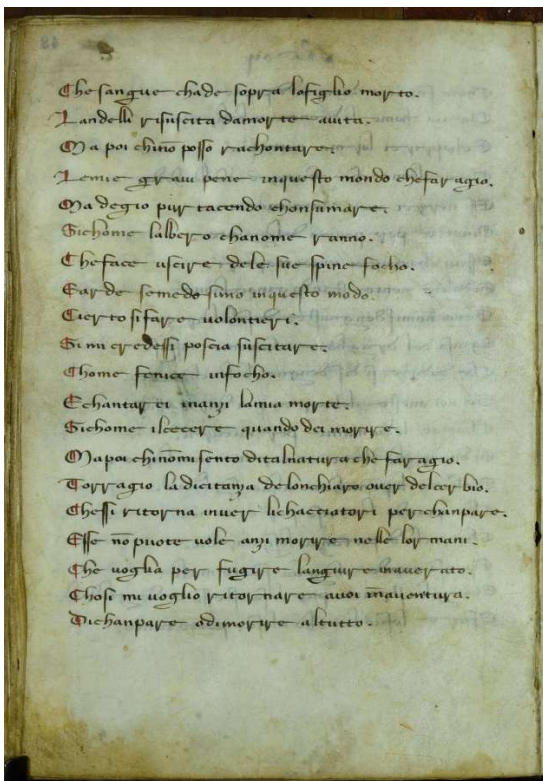 Che sangue chade sopra lofiglio morto.
Landelli risuscita damorte auita.
Ma poi chinō posso rachontare.
Lemie graui pene inquesto mondo chefaragio.
Ma degio pur tacendo chonsumare.
Sichome lalbero chanome ranno.
Cheface uscire dele sue spine focho.
Earde semedesimo inquesto modo.
Cierto sifare uolontieri.
Simi credessi poscia suscitare.
Chome fenice infocho.
Echantarei inanzi lamia morte.
Sichome ilcecere quando dei morire.
Ma poi chinōmi sento ditalnatura che faragio.
Torragio la dicitanza delonchiaro ouer delcerbio.
Chessi ritorna inuer lichacciatori perchanpare.
Esse no puote uole anzi morire nelle lor mani.
Che uoglia per fugire languire inauerato.
Chosi mi uoglio ritornare auoi mauentura.
Dichanpare odimorire altutto.